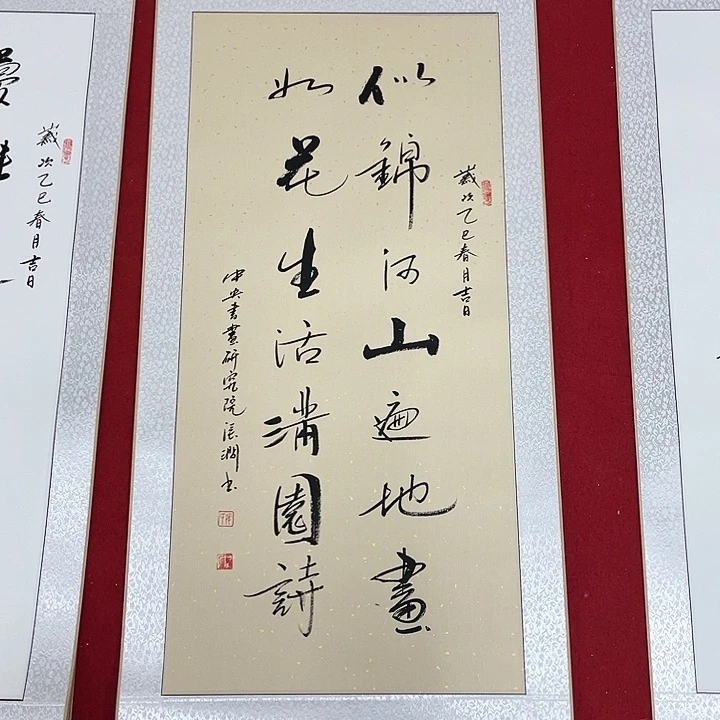 歲次乙巳春月吉日
似錦河山遍地畫
如花生活滿園詩
中央書畫研究院張潤书
歲次乙巳春月吉日